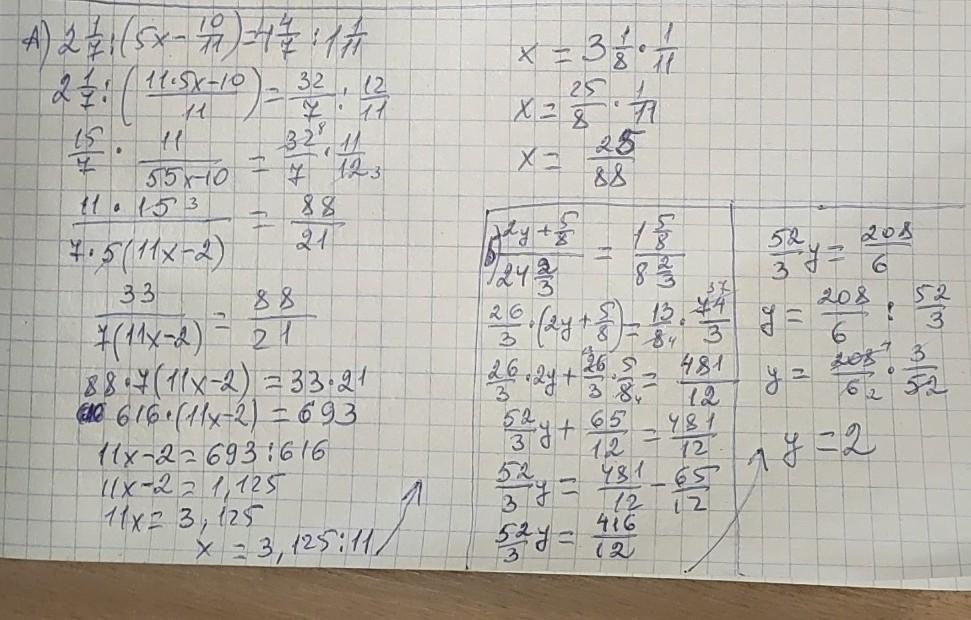 А) 2 1/7 : (5x - 10/11) = 4 4/7 : 1 1/11
2 1/7 : ((11·5x-10)/11) = 32/7 : 12/11
15/7 · 11/(55x-10) = 32⁸/7 · 11/12₃
(11·15³)/(7·5(11x-2)) = 88/21
33/(7(11x-2)) = 88/21
88·7(11x-2) = 33·21
616·(11x-2) = 693
11x-2 = 693:616
11x-2 = 1,125
11x = 3,125
x = 3,125:11
x = 3 1/8 · 1/11
x = 25/8 · 1/11
x = 25/88
Б) (2y + 5/8)/(24 2/3) = (1 5/8)/(8 2/3)
26/3 · (2y + 5/8) = 13/8₄ · 74³⁷/3
26/3 · 2y + 26¹³/3 · 5/8₄ = 481/12
52/3 y + 65/12 = 481/12
52/3 y = 481/12 - 65/12
52/3 y = 416/12
52/3 y = 208/6
y = 208/6 : 52/3
y = 208⁴/6₂ · 3/52
y = 2